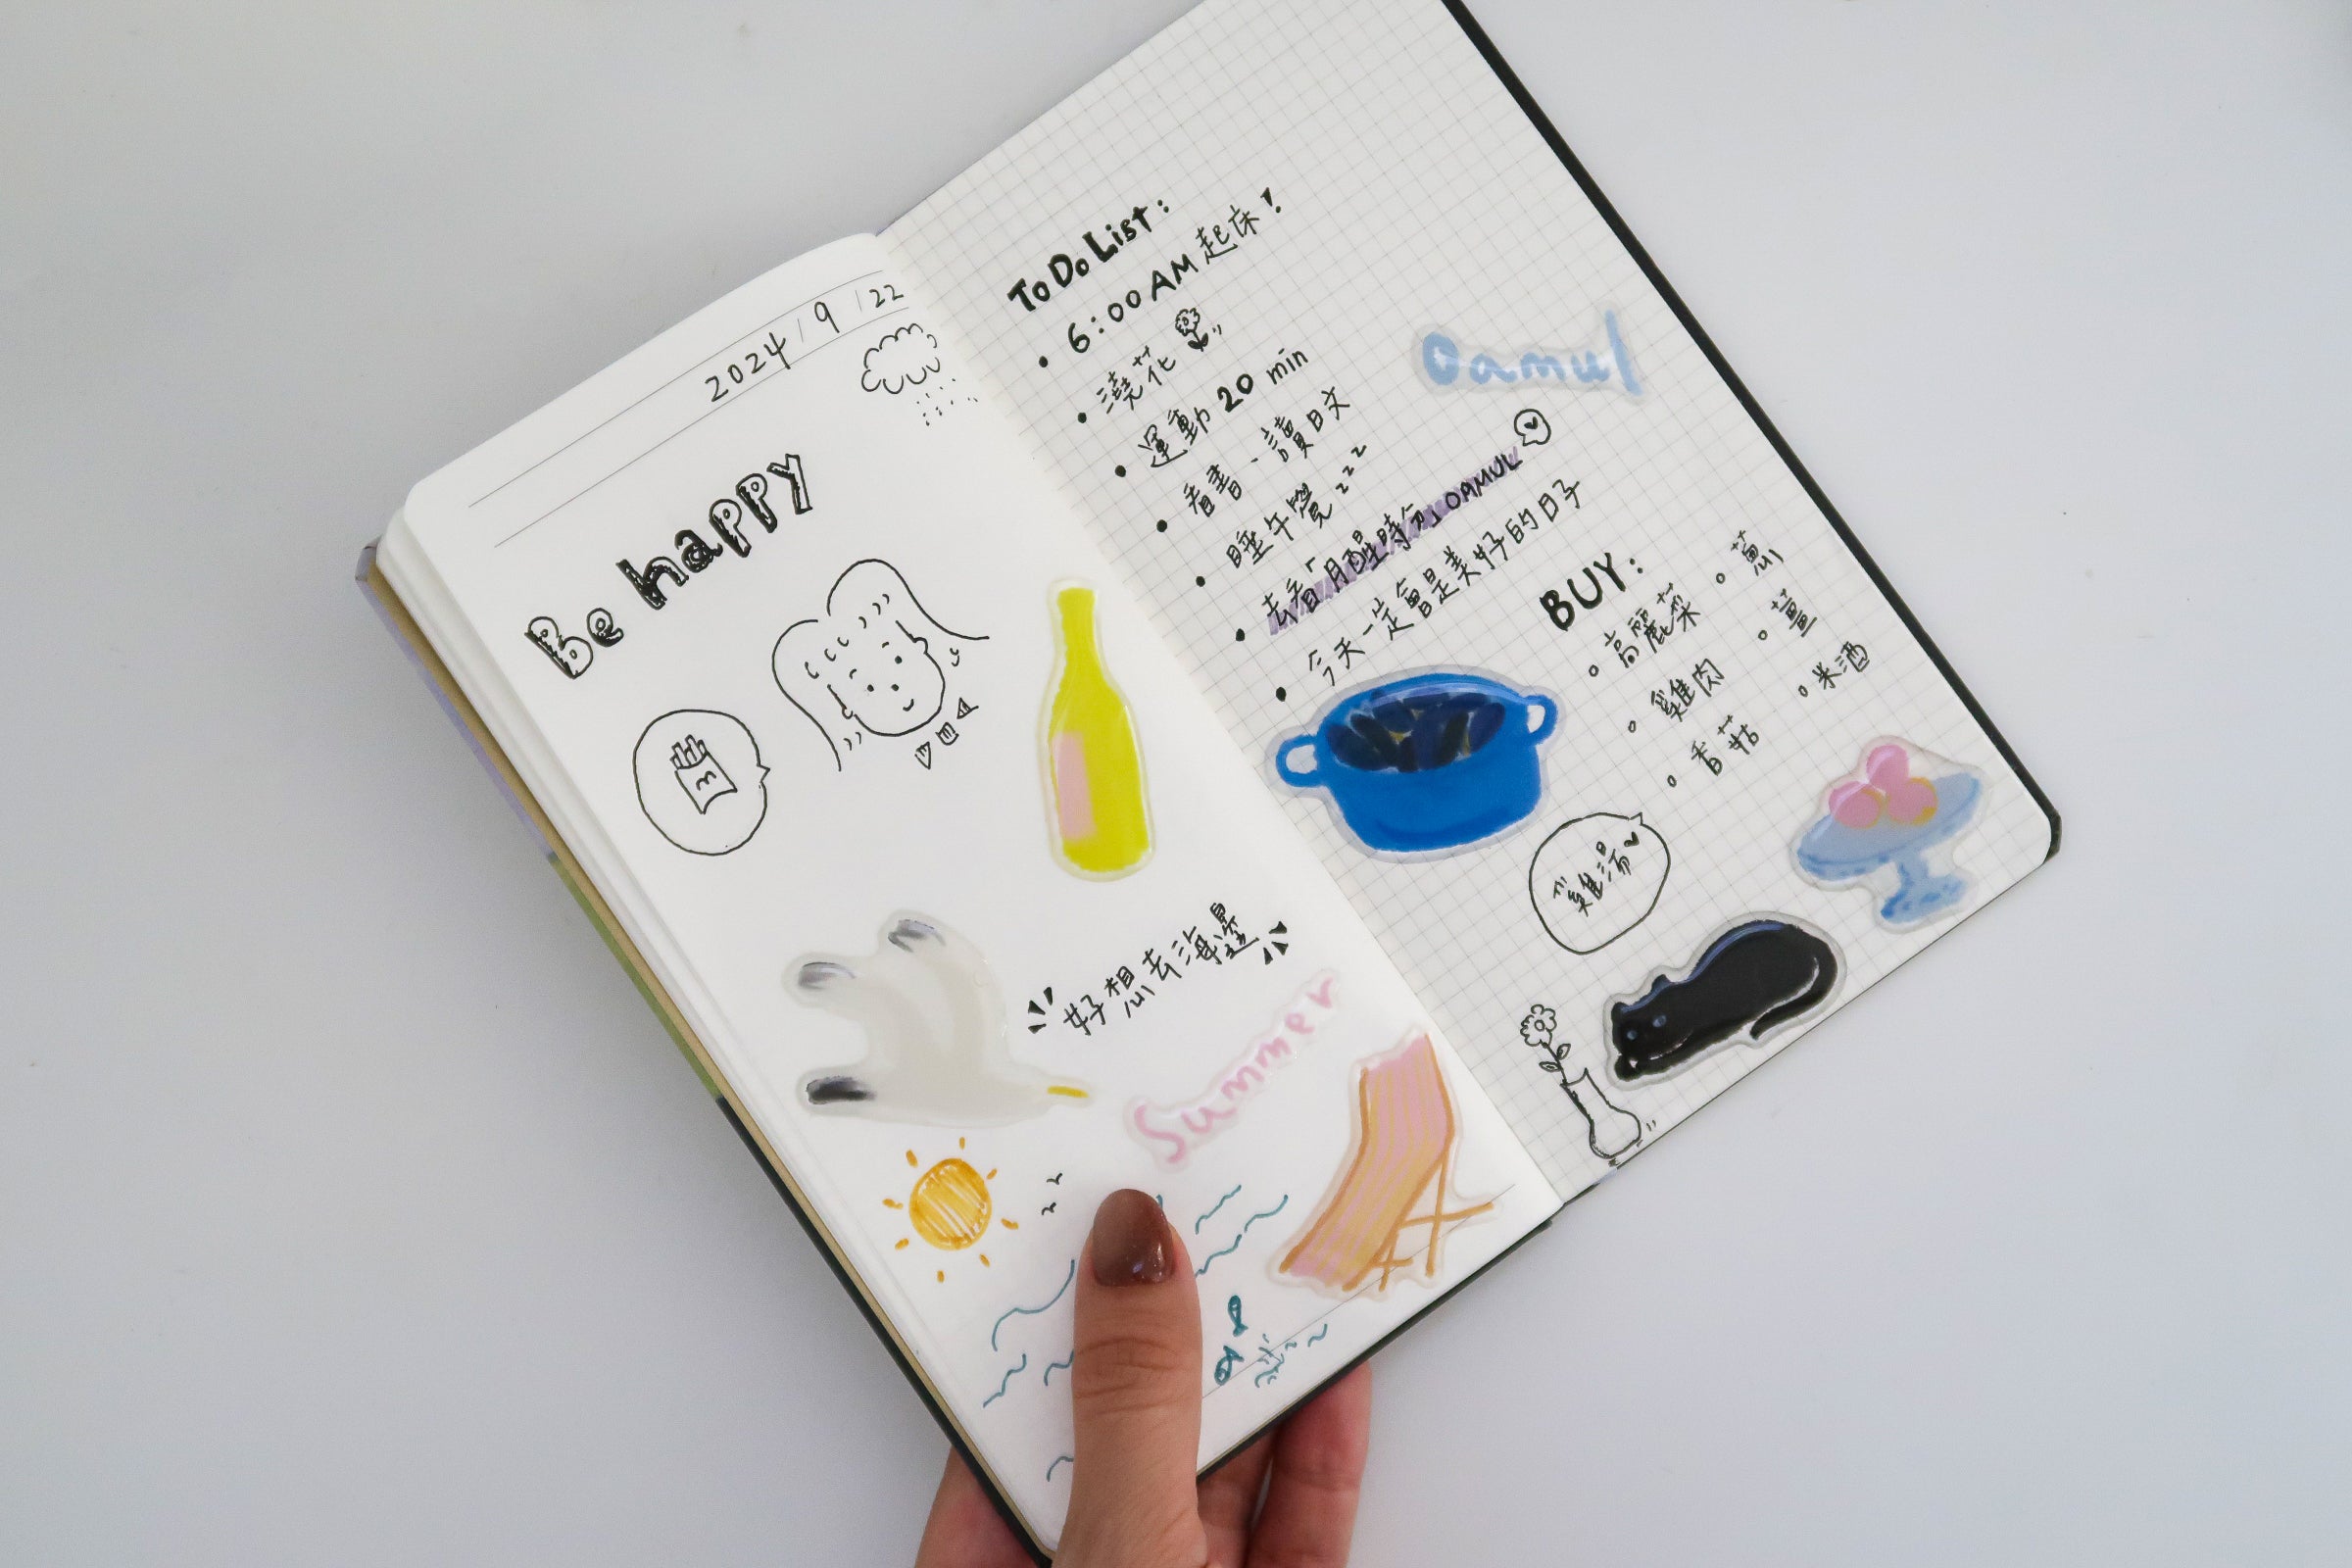 2024/9/22
Be happy
好想去海邊
Summer
To Do List:
• 6:00 AM 起床!
• 澆花
• 運動 20 min
• 看書、讀日文
• 睡午覺 zzz
• 去看「月醒時分」OAMUL
• 今天一定會是美好的日子
Oamul
BUY:
高麗菜
雞肉
香菇
蔥
薑
米酒
雞湯